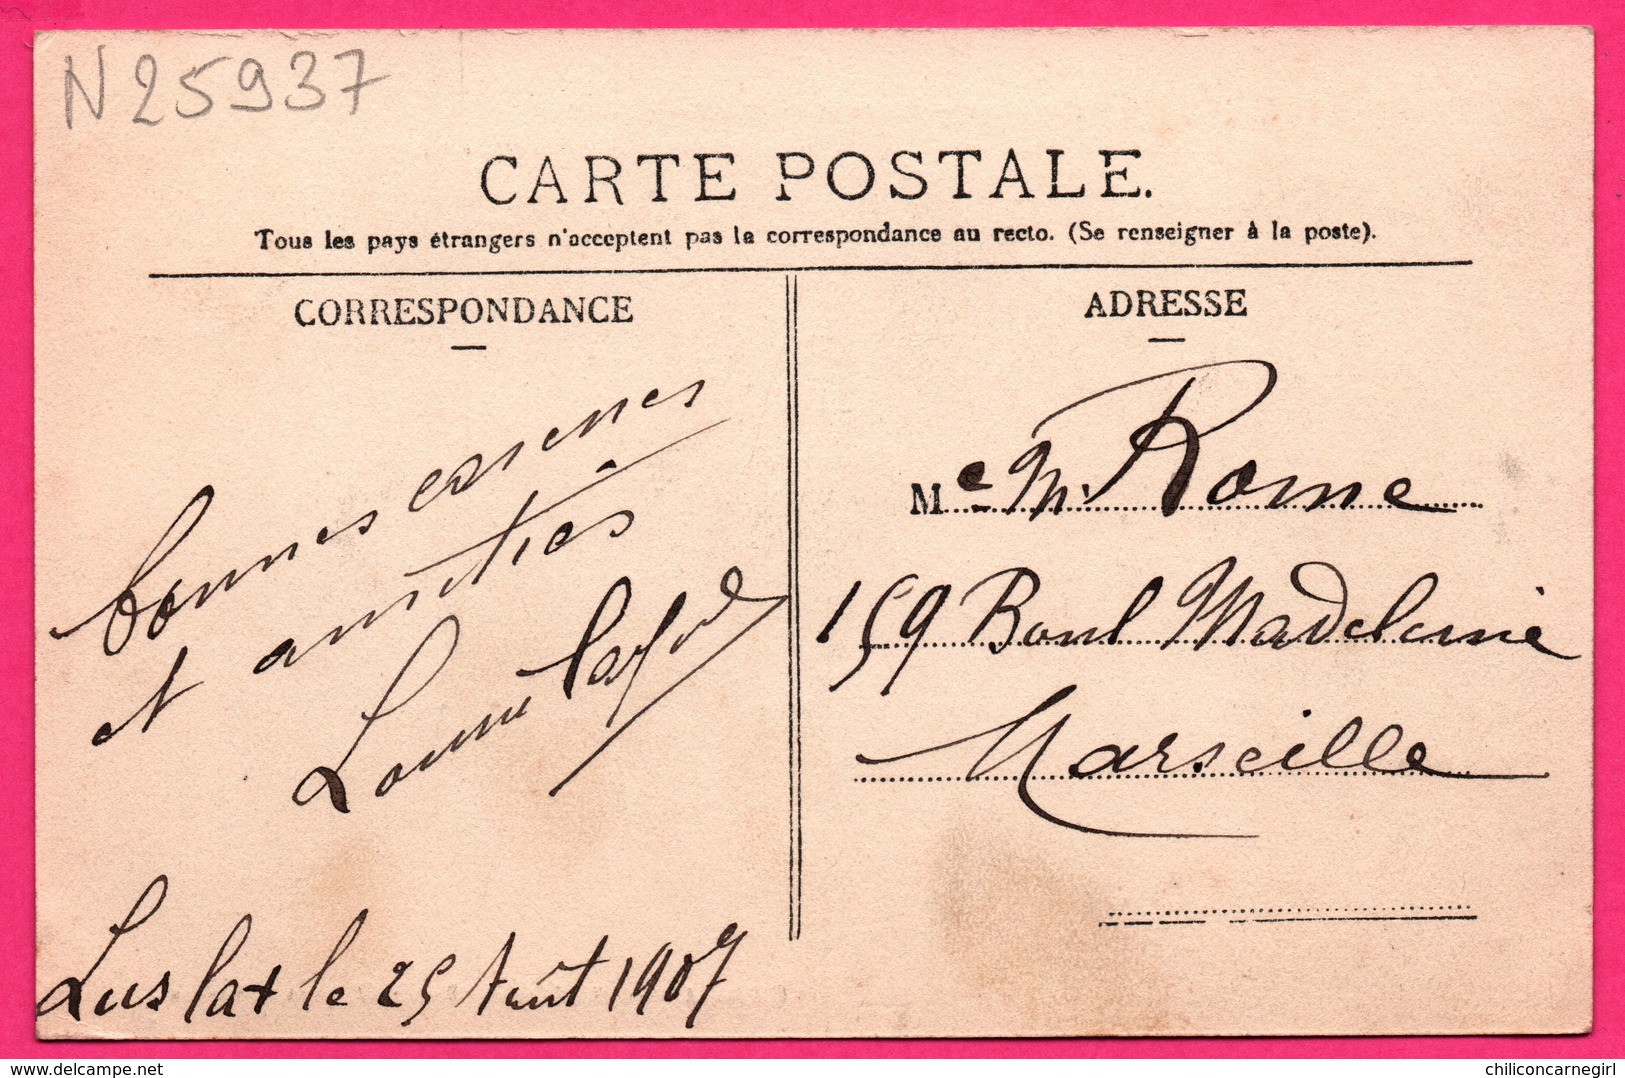 N 25937
CARTE POSTALE.
Tous les pays étrangers n'acceptent pas la correspondance au recto. (Se renseigner à la poste).
CORRESPONDANCE
ADRESSE
bonnes
et amitiés
Lus la + le 25 Août 1907
Me M. Rome
159 Boul Madeleine
Marseille
chiliconcarnegirl / delcampe.net